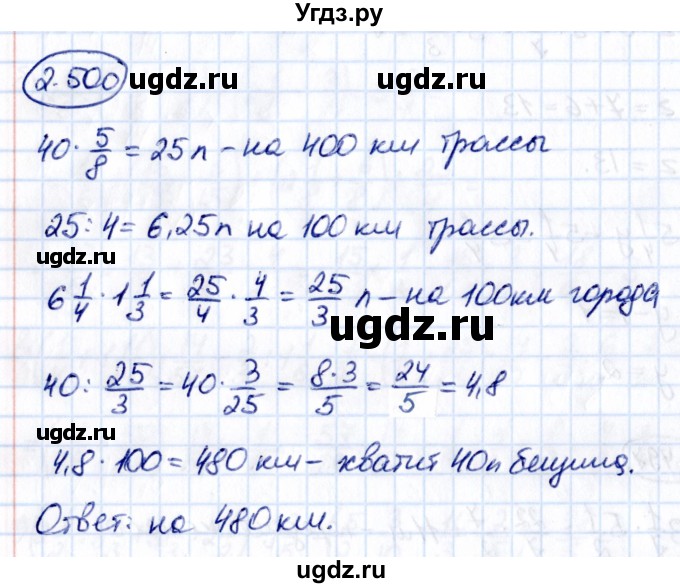 Угдз.ру
2.500
ugdz.ru ugdz.ru
40 · 5/8 = 25 л – на 400 км трассы
25 : 4 = 6,25 л на 100 км трассы.
ugdz.ru
6 1/4 · 1 1/3 = 25/4 · 4/3 = 25/3 л – на 100 км города
ugdz.ru
40 : 25/3 = 40 · 3/25 = 8·3/5 = 24/5 = 4,8
ugdz.ru
4,8 · 100 = 480 км – хватит 40 л бензина.
Ответ: на 480 км.
ugdz.ru ugdz.ru